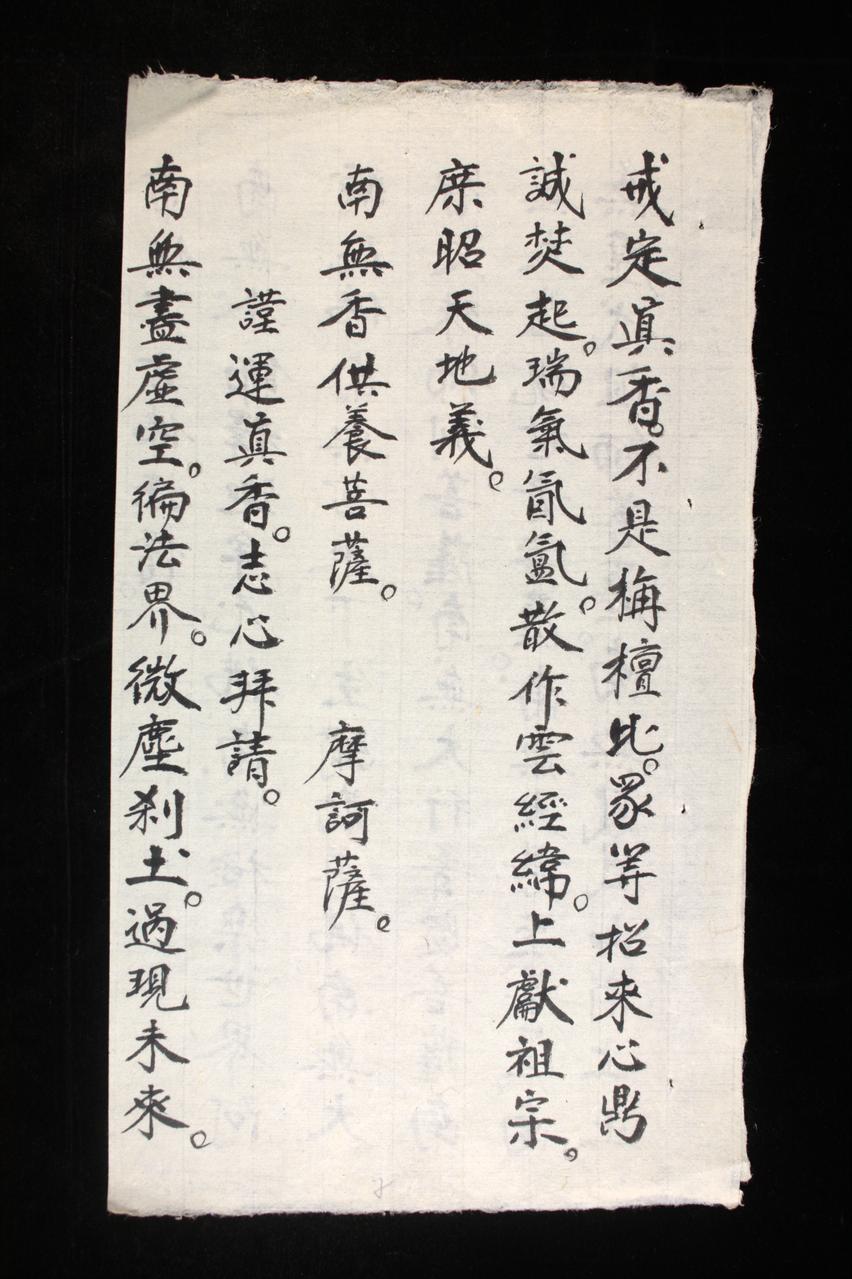 戒定真香。不是栴檀比。眾等招來心鼎
誠焚起。瑞氣氤氳。散作雲經緯。上獻祖宗。
庶昭天地義。
南無香供養菩薩。　摩訶薩。
謹運真香。志心拜請。
南無盡虛空。徧法界。微塵刹土。過現未來。